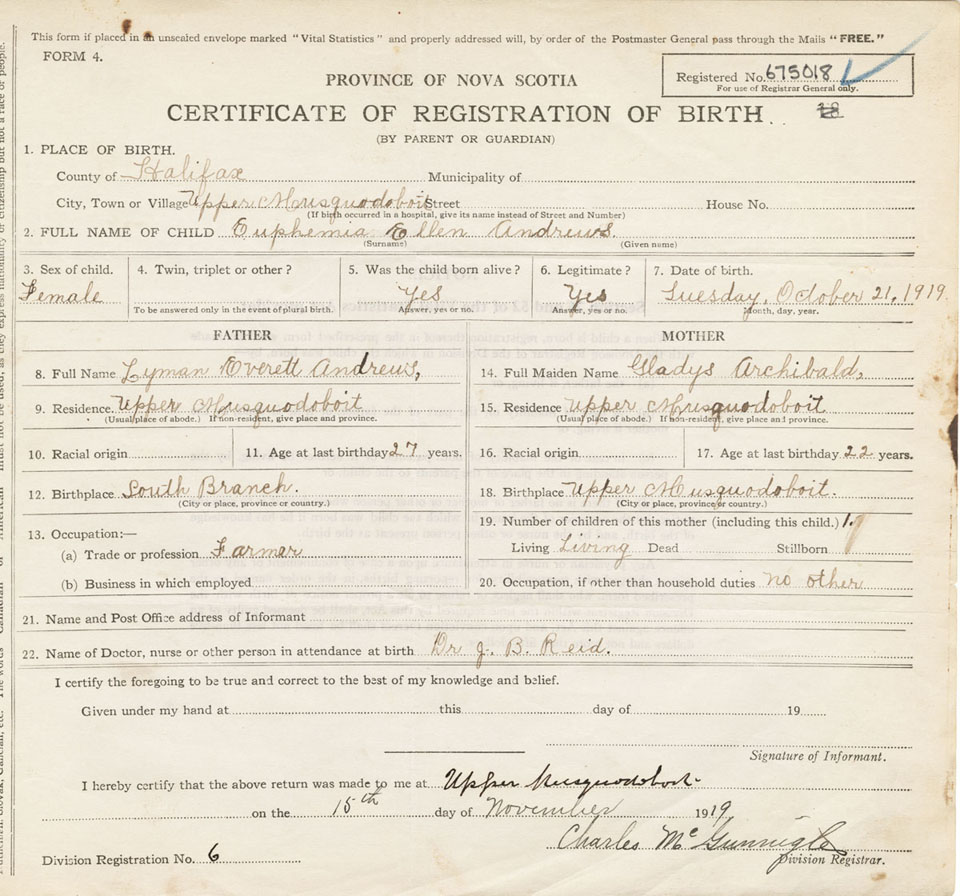 This form if placed in an unsealed envelope marked "Vital Statistics" and properly addressed will, by order of the Postmaster General pass through the Mails "FREE."
FORM 4.
PROVINCE OF NOVA SCOTIA
Registered No. 675018
For use of Registrar General only.
CERTIFICATE OF REGISTRATION OF BIRTH.
(BY PARENT OR GUARDIAN)
1. PLACE OF BIRTH.
County of Halifax Municipality of
City, Town or Village Upper Musquodoboit Street House No.
(If birth occurred in a hospital, give its name instead of Street and Number)
2. FULL NAME OF CHILD Euphemia Ellen Andrews.
(Surname) (Given name)
3. Sex of child. 4. Twin, triplet or other? 5. Was the child born alive? 6. Legitimate? 7. Date of birth.
Female Yes Yes Tuesday, October 21, 1919.
To be answered only in the event of plural birth. Answer, yes or no. Answer, yes or no. Month, day, year.
FATHER MOTHER
8. Full Name Lyman Everett Andrews, 14. Full Maiden Name Gladys Archibald,
9. Residence. Upper Musquodoboit 15. Residence Upper Musquodoboit
(Usual place of abode.) If non-resident, give place and province. (Usual place of abode.) If non-resident, give place and province.
10. Racial origin 11. Age at last birthday 27 years. 16. Racial origin 17. Age at last birthday 22 years.
12. Birthplace South Branch. 18. Birthplace Upper Musquodoboit.
(City or place, province or country.) (City or place, province or country.)
13. Occupation:— 19. Number of children of this mother (including this child.) 1.
(a) Trade or profession Farmer Living Living Dead Stillborn
(b) Business in which employed 20. Occupation, if other than household duties no other
21. Name and Post Office address of Informant
22. Name of Doctor, nurse or other person in attendance at birth Dr J. B. Reid.
I certify the foregoing to be true and correct to the best of my knowledge and belief.
Given under my hand at this day of 19
Signature of Informant.
I hereby certify that the above return was made to me at Upper Musquodoboit
on the 15th day of November 1919
Charles McGunnigle
Division Registration No. 6 Division Registrar.